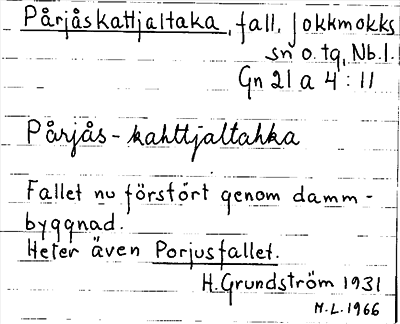 Pårjåskattjaltaka, fall, Jokkmokks
sn o. tg, Nb.l.
Gn 21 a 4:11
Pårjås-kahttjaltahka
Fallet nu förstört genom damm-
byggnad.
Heter även Porjusfallet.
H. Grundström 1931
M.L. 1966